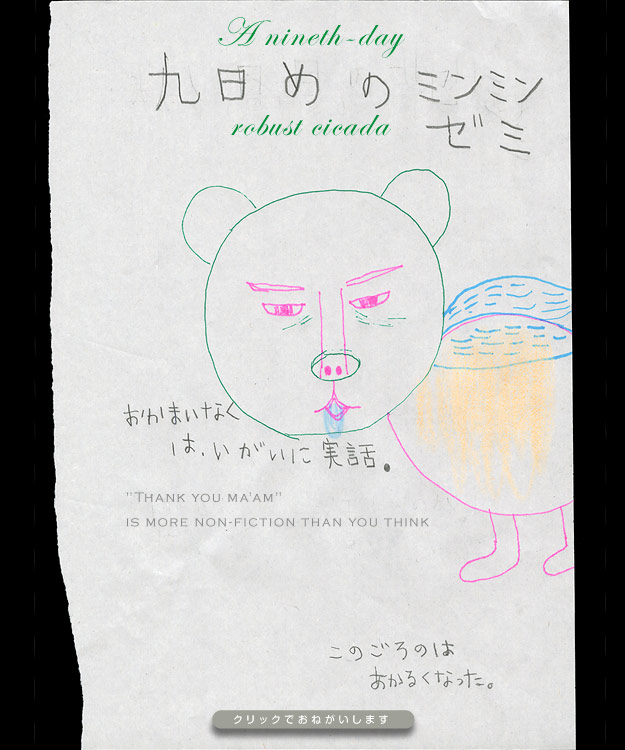 A nineth-day
九日めのミンミン
robust cicada
ゼミ
おかまいなく
は、いがいに実話。
"Thank you ma'am"
is more non-fiction than you think
このごろのは
あかるくなった。
クリックでおねがいします